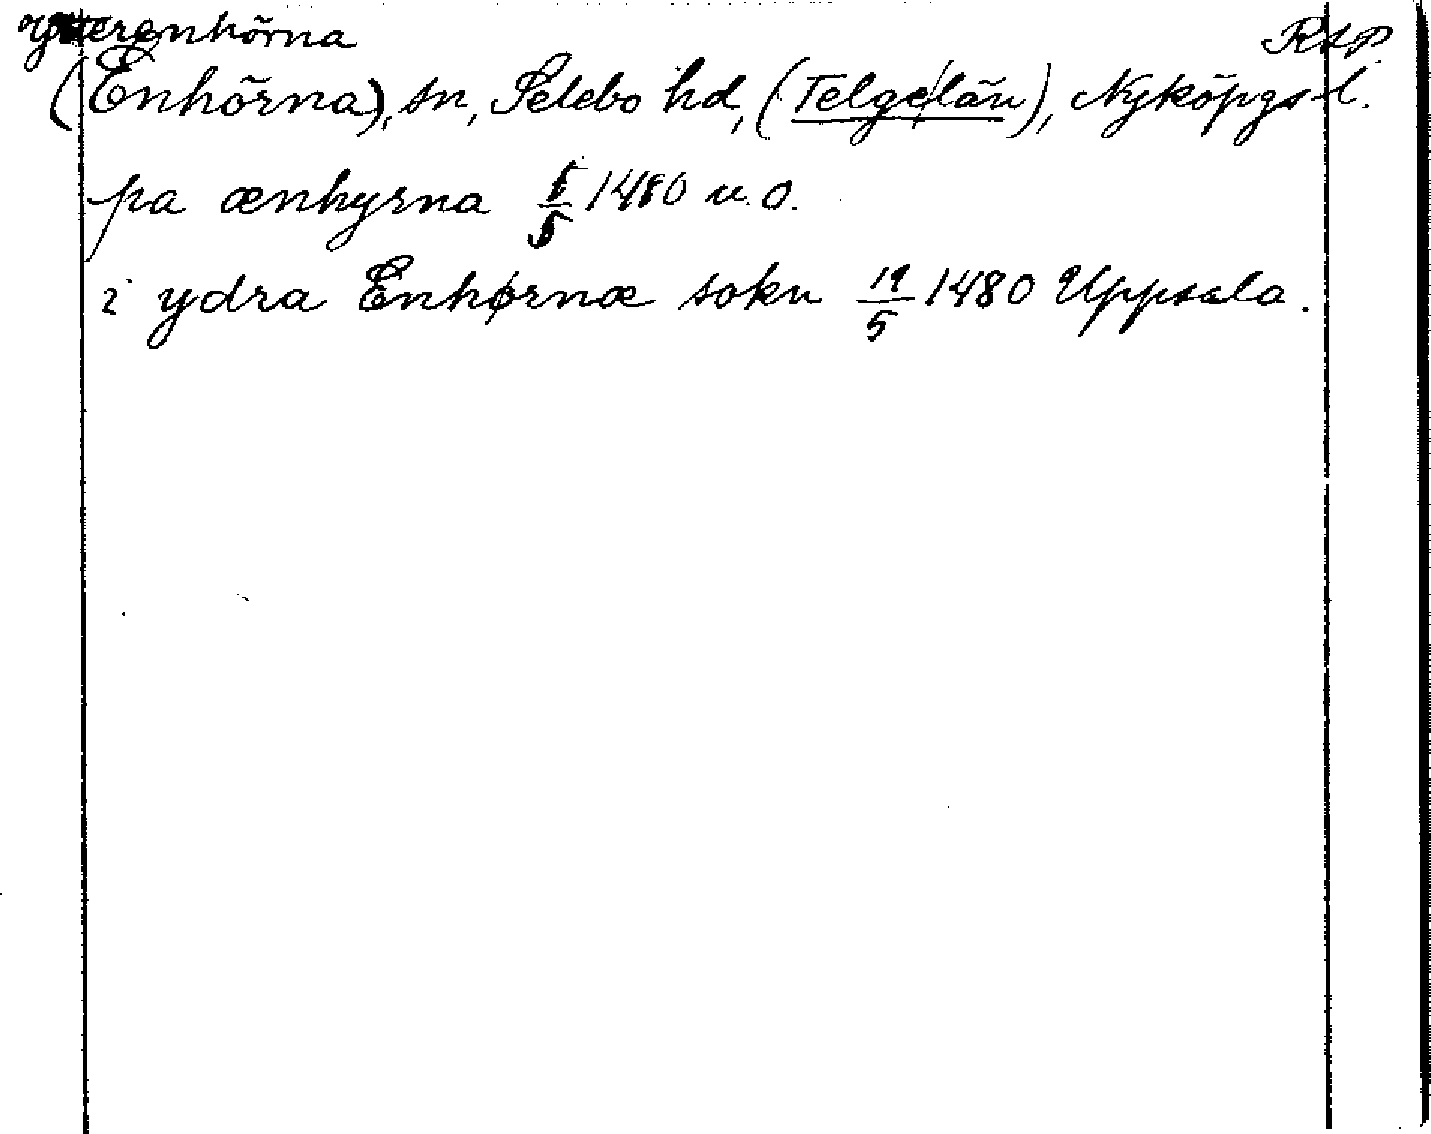 Ytterenhörna RAP.
(Enhörna), sn, Selebo hd, (Telge län), Nyköpgs l.
pa ænhyrna 1/5 1480 u.o.
i ydra Enhørnæ sokn 19/5 1480 Uppsala.